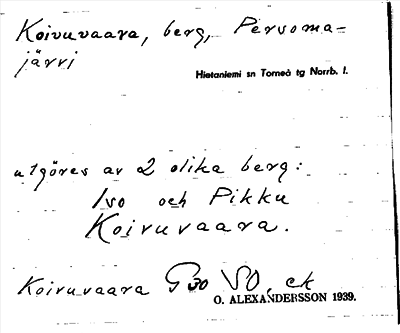 Koivuvaara, berg, Persoma-
järvi
Hietaniemi sn Torneå tg Norrb. l.
utgöres av 2 olika berg:
Iso och Pikku
Koivuvaara.
Koivuvaara VO, ek
O. ALEXANDERSSON 1939.